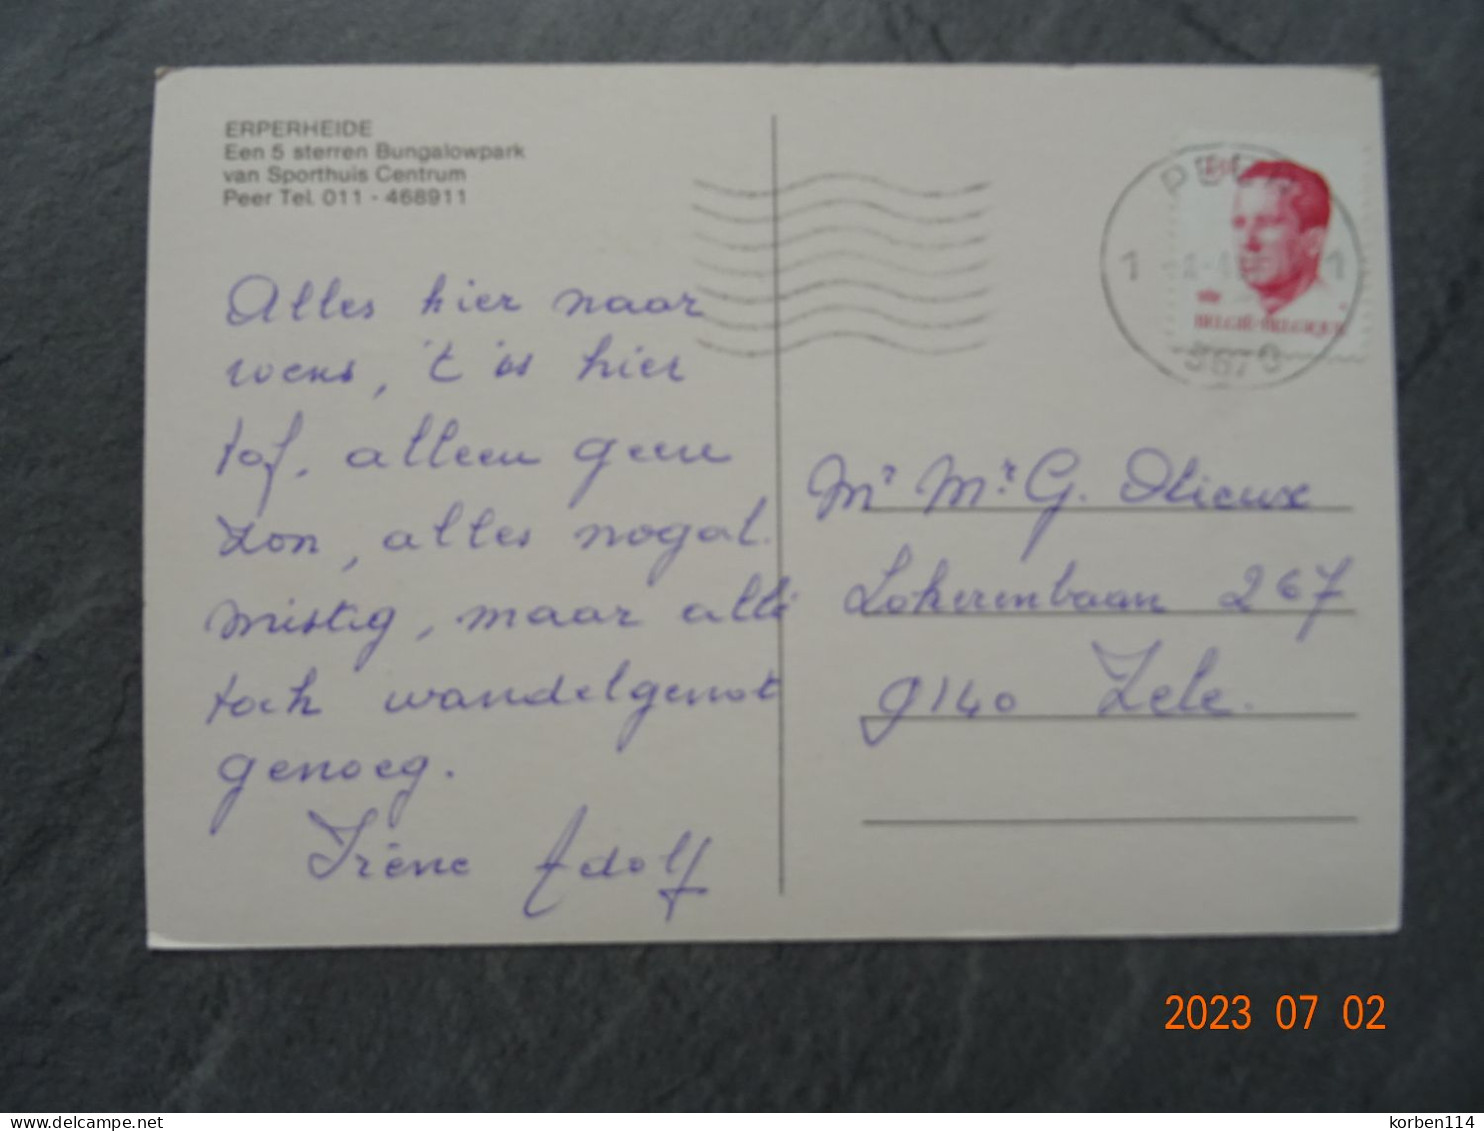 ERPERHEIDE
Een 5 sterren Bungalowpark
van Sporthuis Centrum
Peer Tel. 011 - 468911
Alles hier naar
wens, 't is hier
tof, alleen geen
zon, alles nogal
mistig, maar alle
toch wandelgenot
genoeg.
Irène Adolf
1 1
BELGIË-BELGIQUE
Mr Mr. G.
Lokerenbaan 267
9140 Zele.
2023 07 02
delcampe.net
korben114